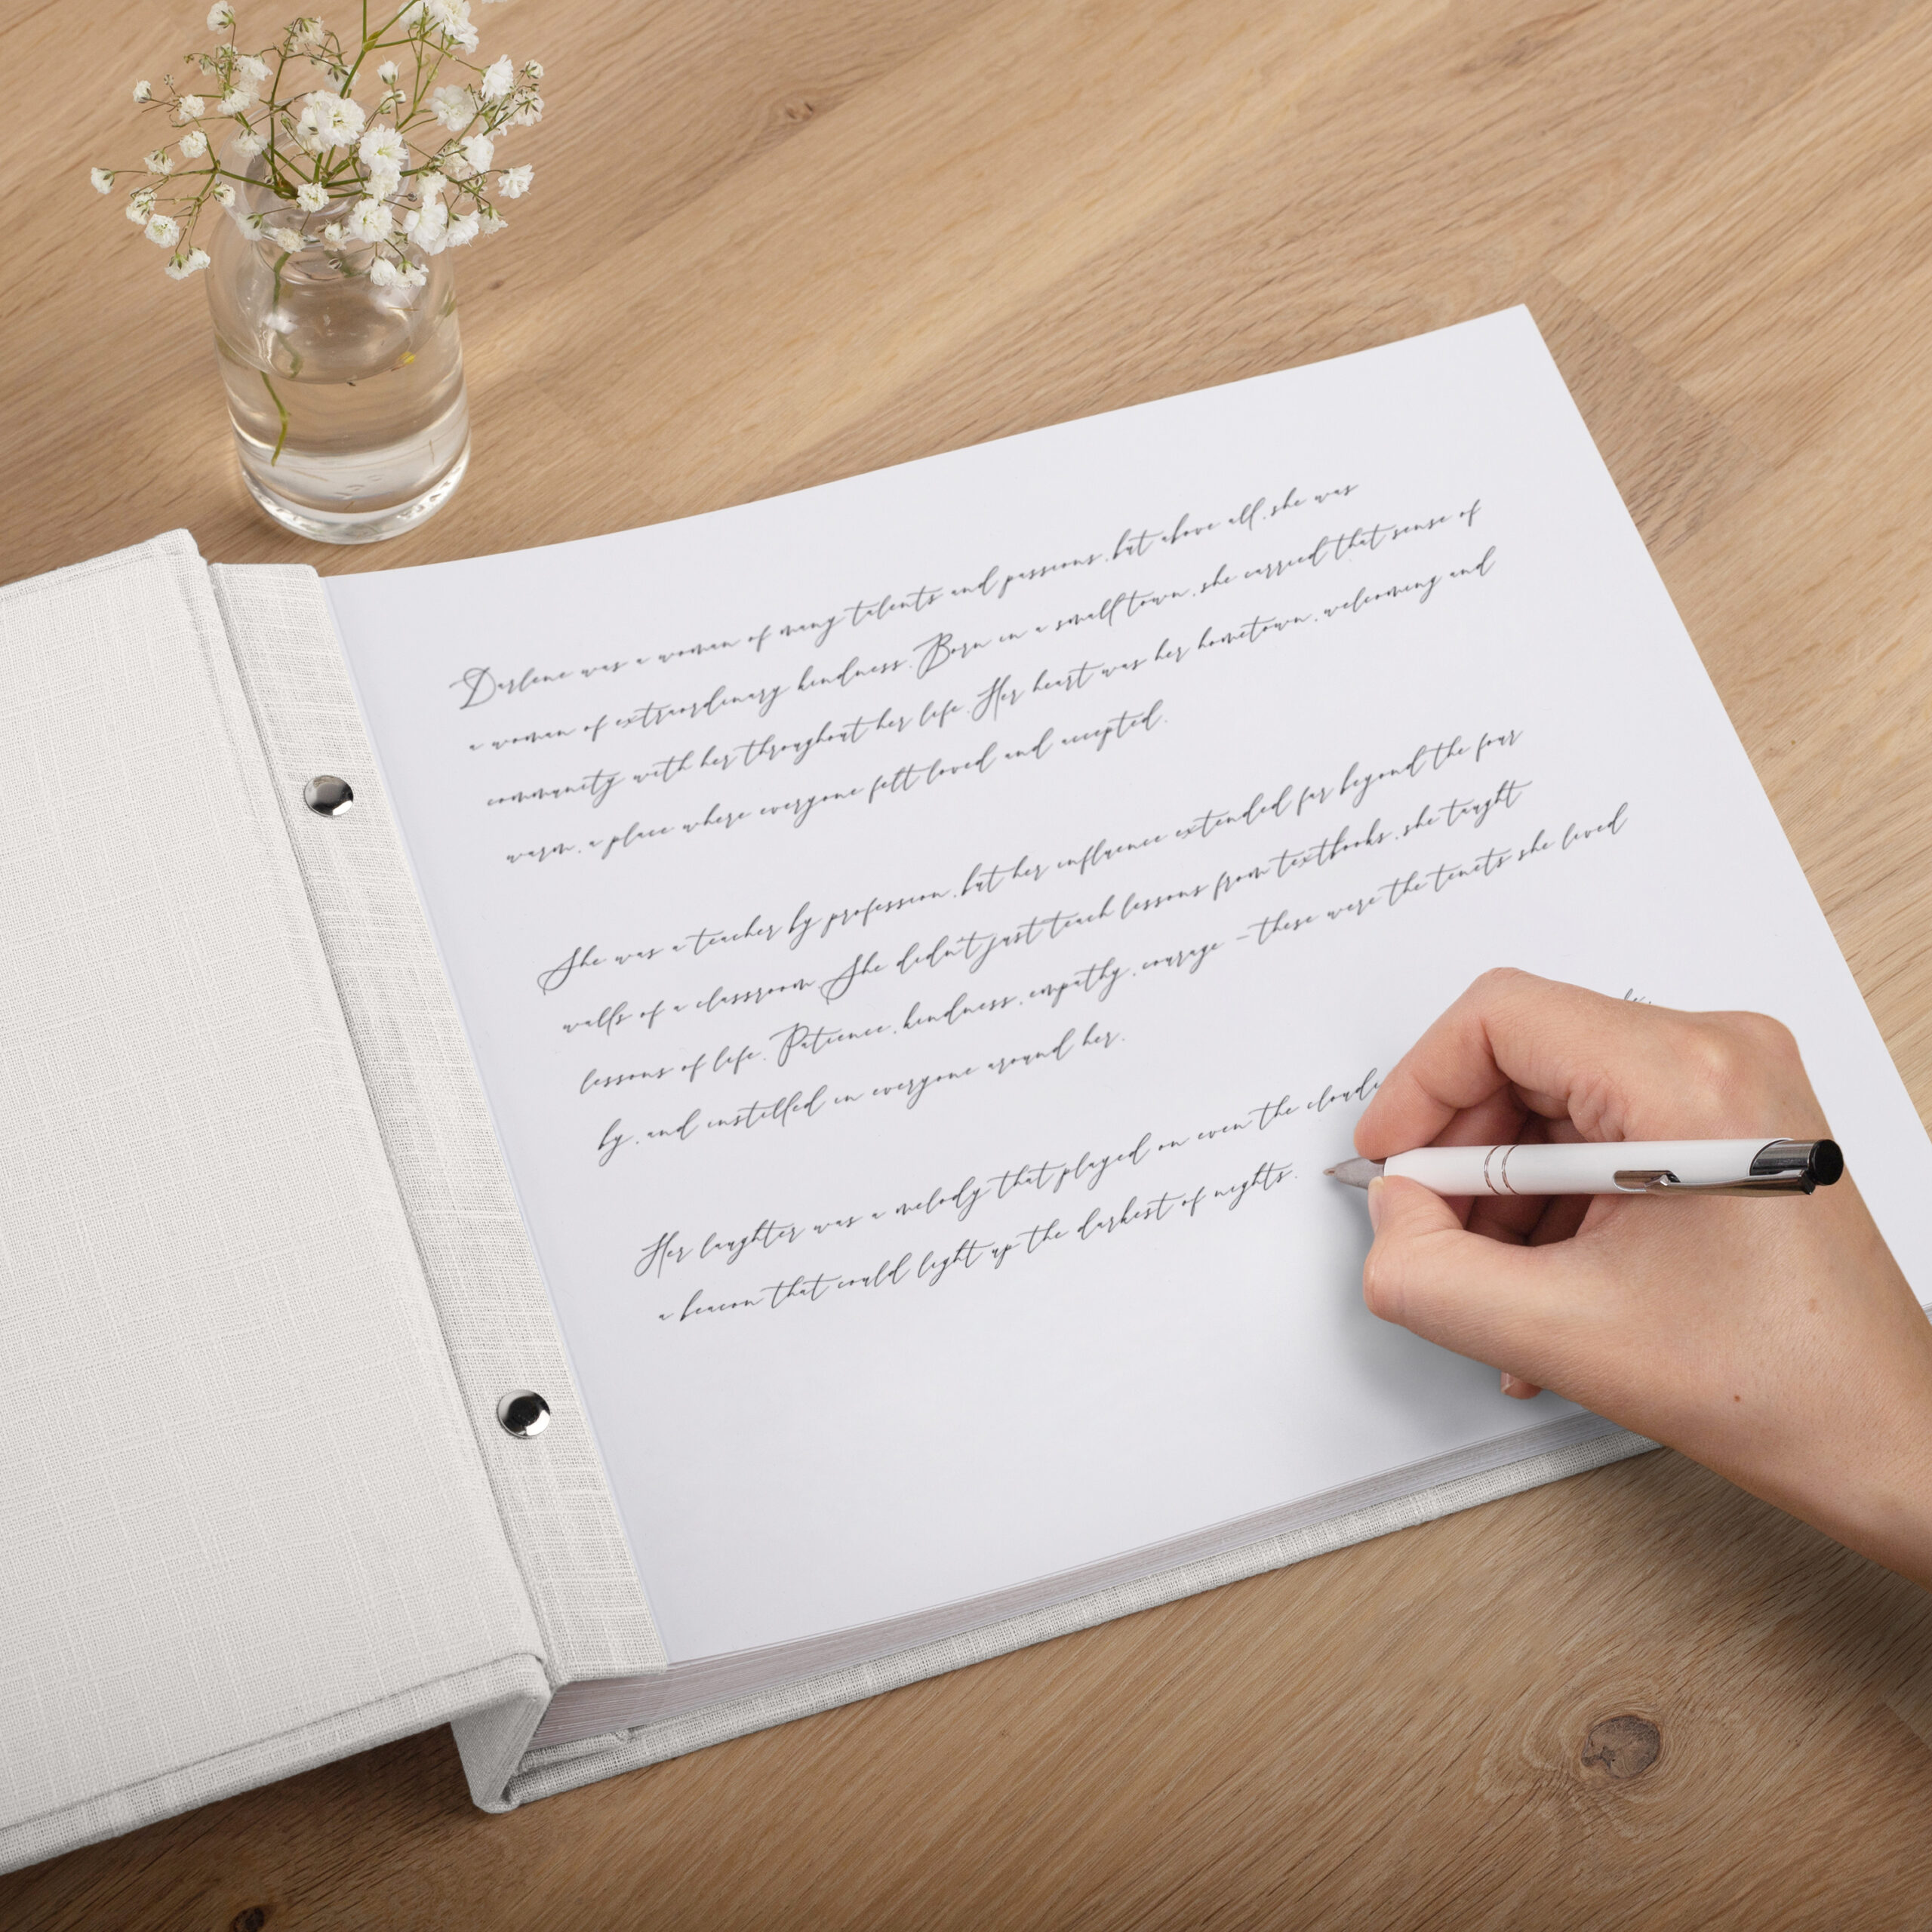 Darlene was a woman of many talents and passions, but above all, she was
a woman of extraordinary kindness. Born in a small town, she carried that sense of
community with her throughout her life. Her heart was her hometown, welcoming and
warm, a place where everyone felt loved and accepted.
She was a teacher by profession, but her influence extended far beyond the four
walls of a classroom. She didn't just teach lessons from textbooks, she taught
lessons of life. Patience, kindness, empathy, courage – these were the tenets she lived
by, and instilled in everyone around her.
Her laughter was a melody that played on even the
a beacon that could light up the darkest of nights.